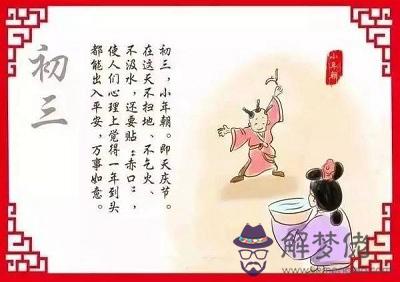 初三
初三，小年朝。即天庆节。
在这天不扫地、不乞火、
不汲水，还要贴“赤口”，
使人们心理上觉得一年到头
都能出入平安，万事如意。
小年朝
解梦佬